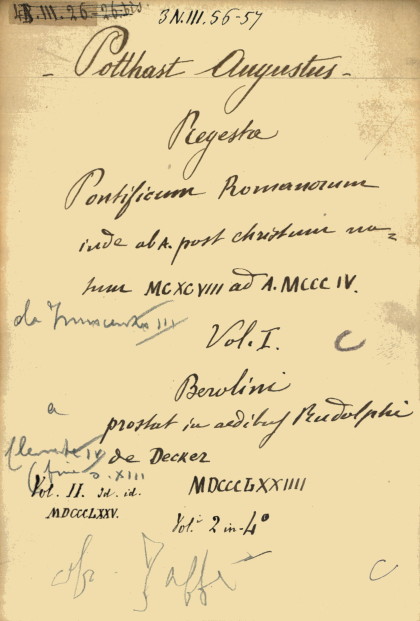 3 N.III. 56-57
- Potthast Augustus -
Regesta
Pontificum Romanorum
inde ab A. post Christum na=
tum MCXCVIII ad A. MCCCIV.
da Innocenzo III
Vol. I.
Berolini
a
prostat in aedibus Rudolphi
de Decker
Clemente IV
(fine s. XIII
Vol. II. Id. id.
MDCCCLXXIIII
MDCCCLXXV.
Vol.i 2 in-4º
cfr. Jaffé